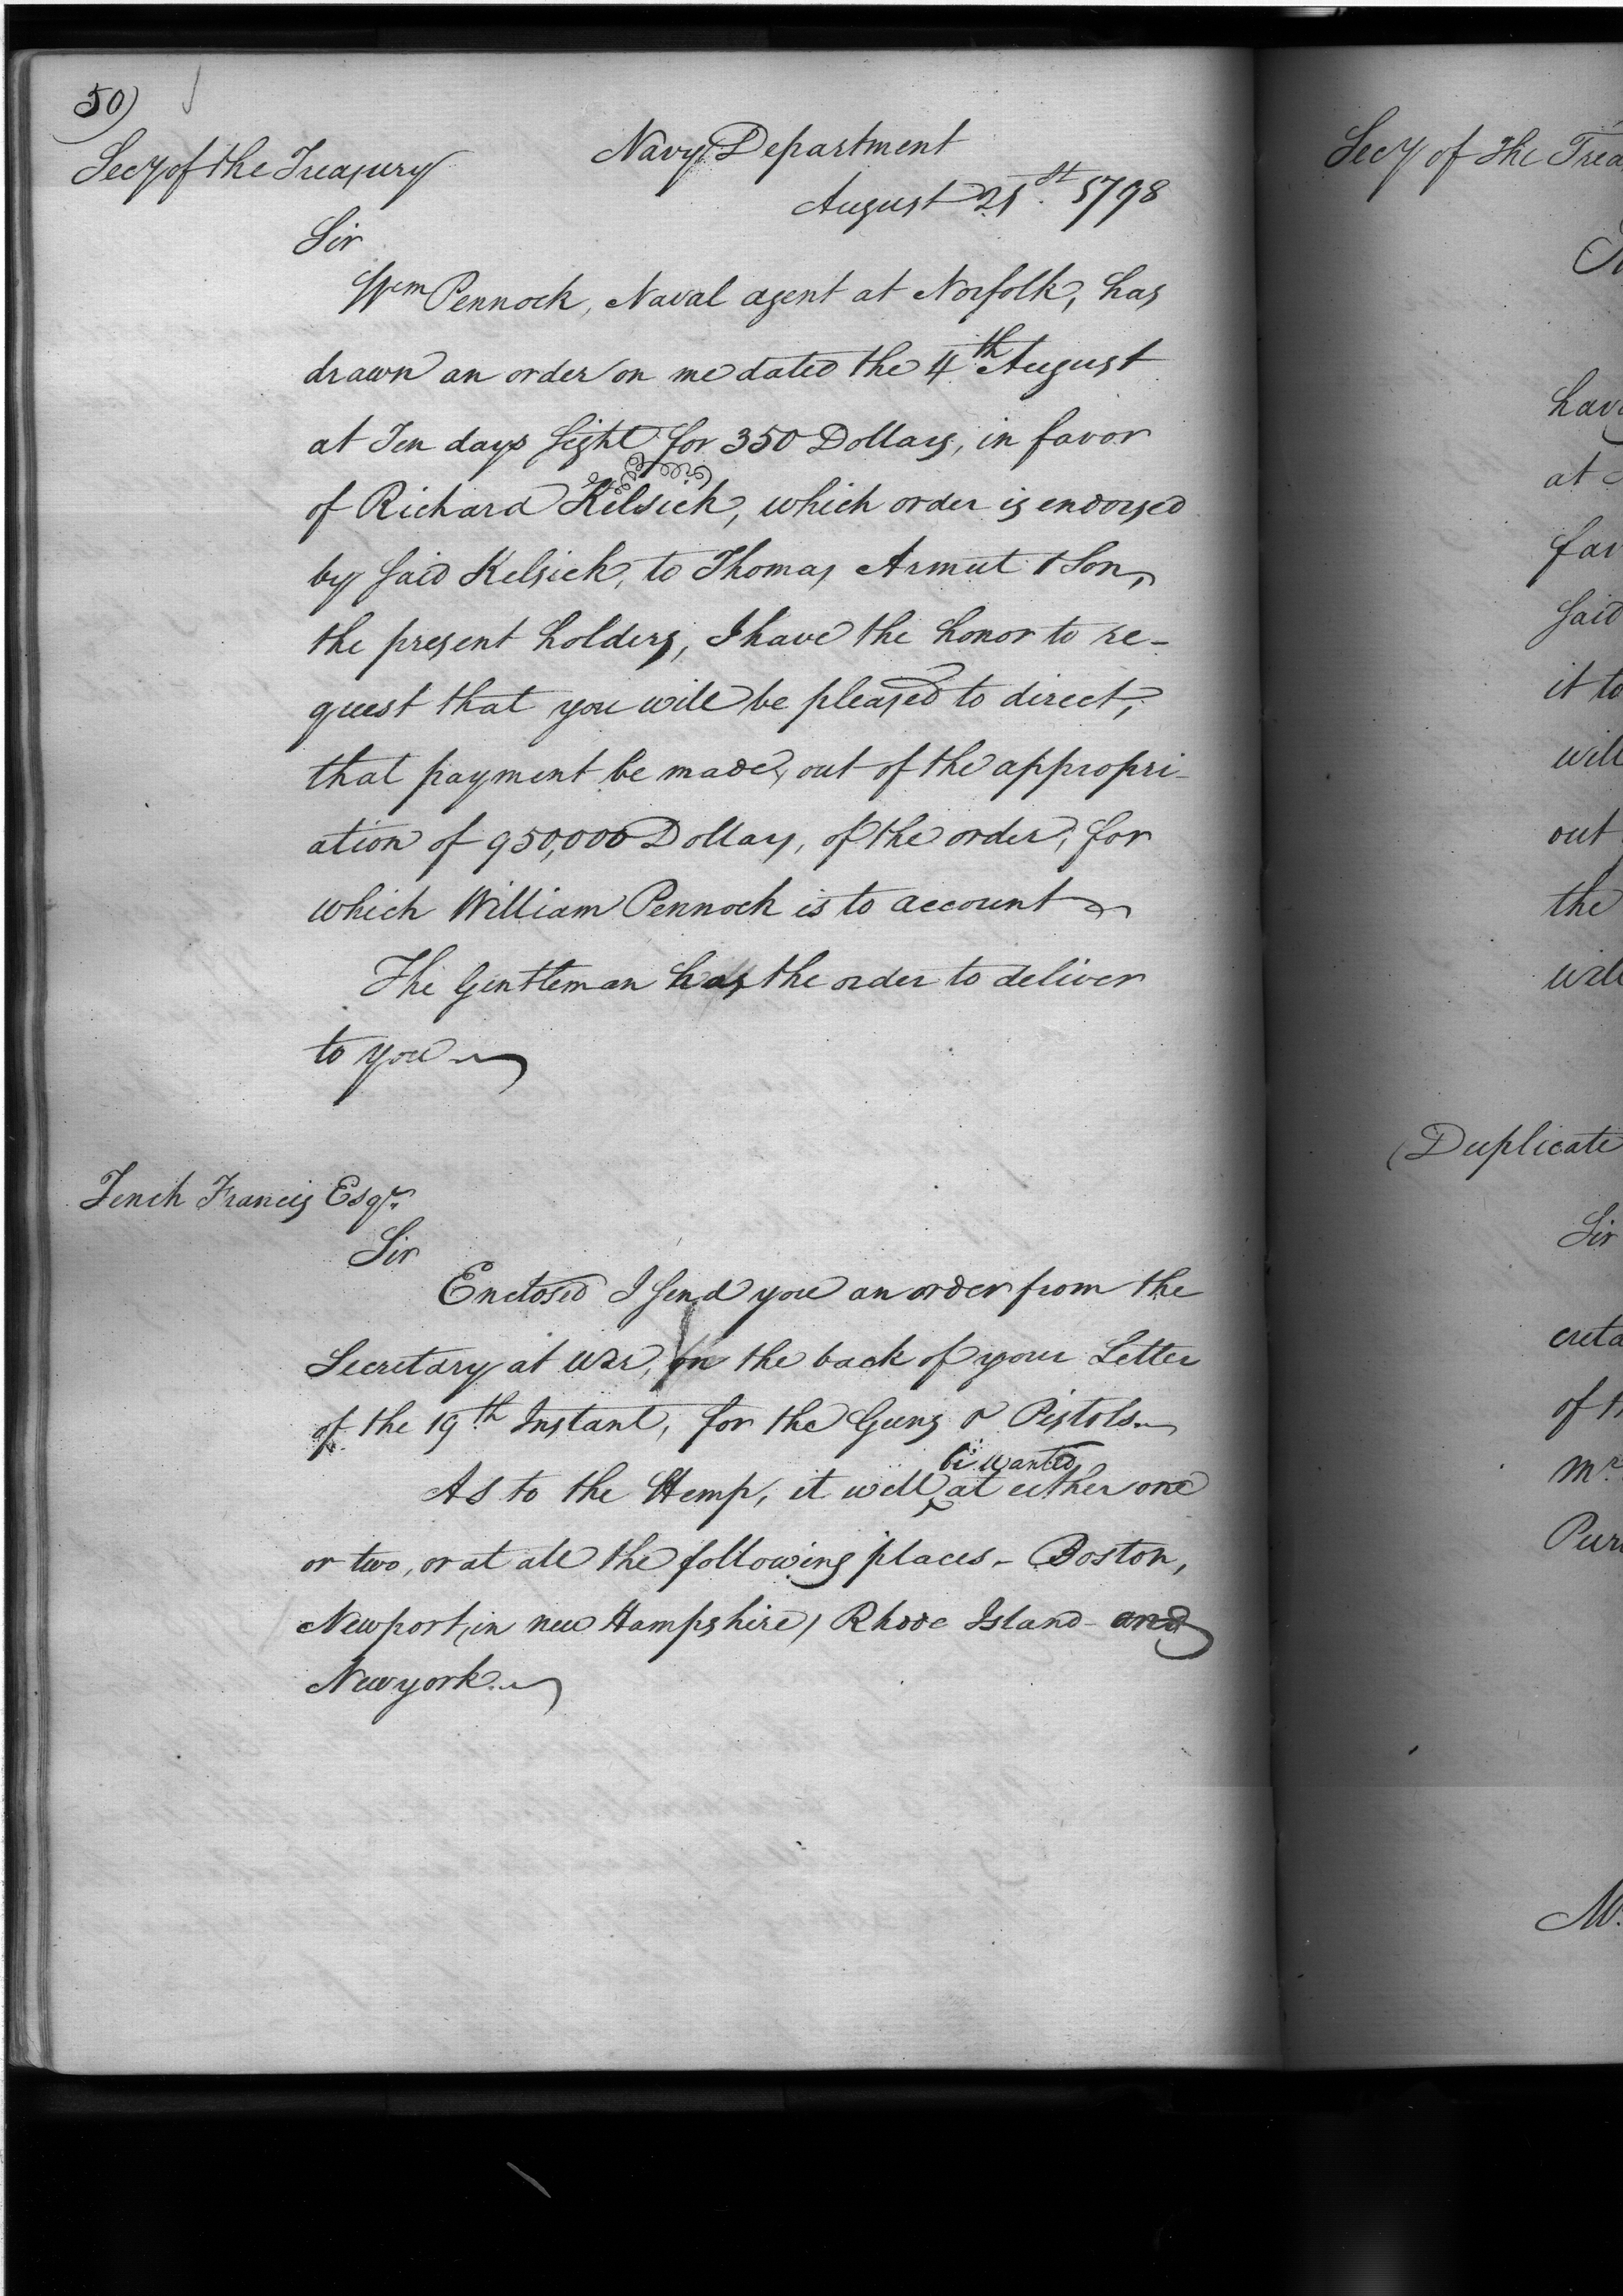 50)
Secy of the Treasury
Navy Department
August 21st 1798
Sir
Wm Pennock, Naval agent at Norfolk, has
drawn an order on me dated the 4th August
at Ten days sight for 350 Dollars, in favor
of Richard Kelsick, which order is endorsed
by said Kelsick, to Thomas Armut & Son,
the present holders, I have the honor to re-
quest that you will be pleased to direct,
that payment be made, out of the appropri-
ation of 950,000 Dollars, of the order, for
which William Pennock is to account
The Gentleman has the order to deliver
to you
Tench Francis Esqr.
Sir
Enclosed I send you an order from the
Secretary at war, on the back of your Letter
of the 19th Instant, for the Guns & Pistols.
As to the Hemp, it will be wanted at either one
or two, or at all the following places - Boston,
Newport, in new Hampshire, Rhode Island - and
Newyork.
Secy of the Trea
have
at
far
said
it to
will
out
the
will
(Duplicate
Sir
creta
of th
Mr.
Pur